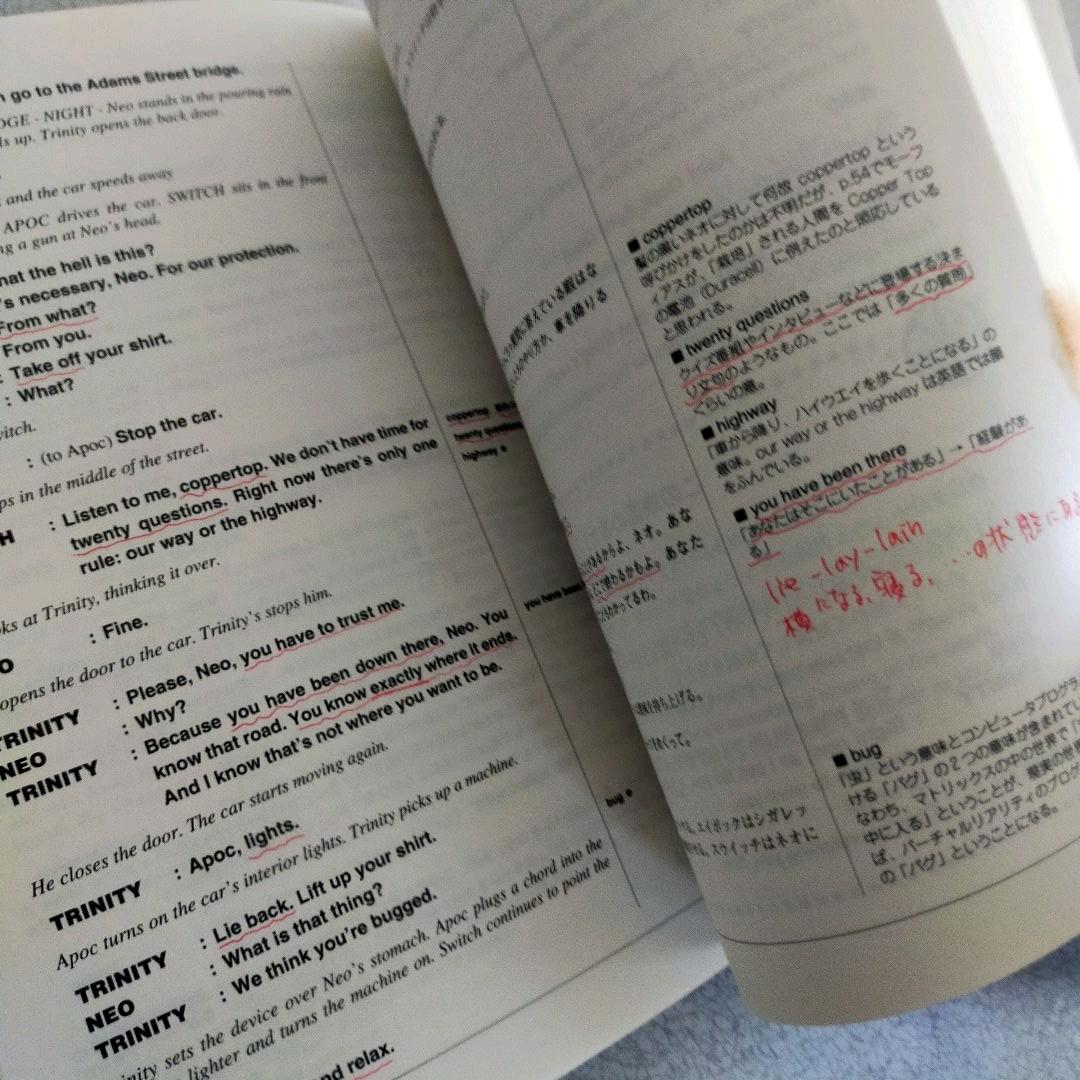 go to the Adams Street bridge.
NIGHT - Neo stands in the pouring rain
up. Trinity opens the back door.
and the car speeds away
APOC drives the car. SWITCH sits in the front
a gun at Neo's head.
the hell is this?
necessary, Neo. For our protection.
From what?
From you.
: Take off your shirt.
: What?
: (to Apoc) Stop the car.
in the middle of the street.
: Listen to me, coppertop. We don't have time for
twenty questions. Right now there's only one
rule: our way or the highway.
at Trinity, thinking it over.
: Fine.
opens the door to the car. Trinity's stops him.
TRINITY : Please, Neo, you have to trust me.
NEO : Why?
TRINITY : Because you have been down there, Neo. You
know that road. You know exactly where it ends.
And I know that's not where you want to be.
He closes the door. The car starts moving again.
TRINITY : Apoc, lights.
Apoc turns on the car's interior lights. Trinity picks up a machine.
TRINITY : Lie back. Lift up your shirt.
NEO : What is that thing?
TRINITY : We think you're bugged.
sets the device over Neo's stomach. Apoc plugs a chord into the
lighter and turns the machine on. Switch continues to point the
relax.
coppertop
twenty questions
highway
you have been
bug
からよ、ネオ。あな
かもよ。あなた
を持ち上げる。
エイポックはシガレッ
スウィッチはネオに
■ coppertop
髪の黒いネオに対して何故 coppertop という
呼びかけをしたのかは不明だが、p.54でモーフ
ィアスが、「栽培」される人間を Copper Top
の電池（Duracell）に例えたのと照応している
と思われる。
■ twenty questions
クイズ番組やインタビューなどに登場する決ま
り文句のようなもの。ここでは「多くの質問」
ぐらいの意。
■ highway
「車から降り、ハイウエイを歩くことになる」の
意味。our way or the highway は英語では韻
をふんでいる。
■ you have been there
「あなたはそこにいたことがある」→「経験があ
る」
lie-lay-lain
横になる、寝る、…の状態にある
■ bug
「虫」という意味とコンピュータプログラ
ける「バグ」の2つの意味が含まれてい
なわち、マトリックスの中の世界で「
中に入る」ということが、現実の世界
ば、バーチャルリアリティのプログ
の「バグ」ということになる。